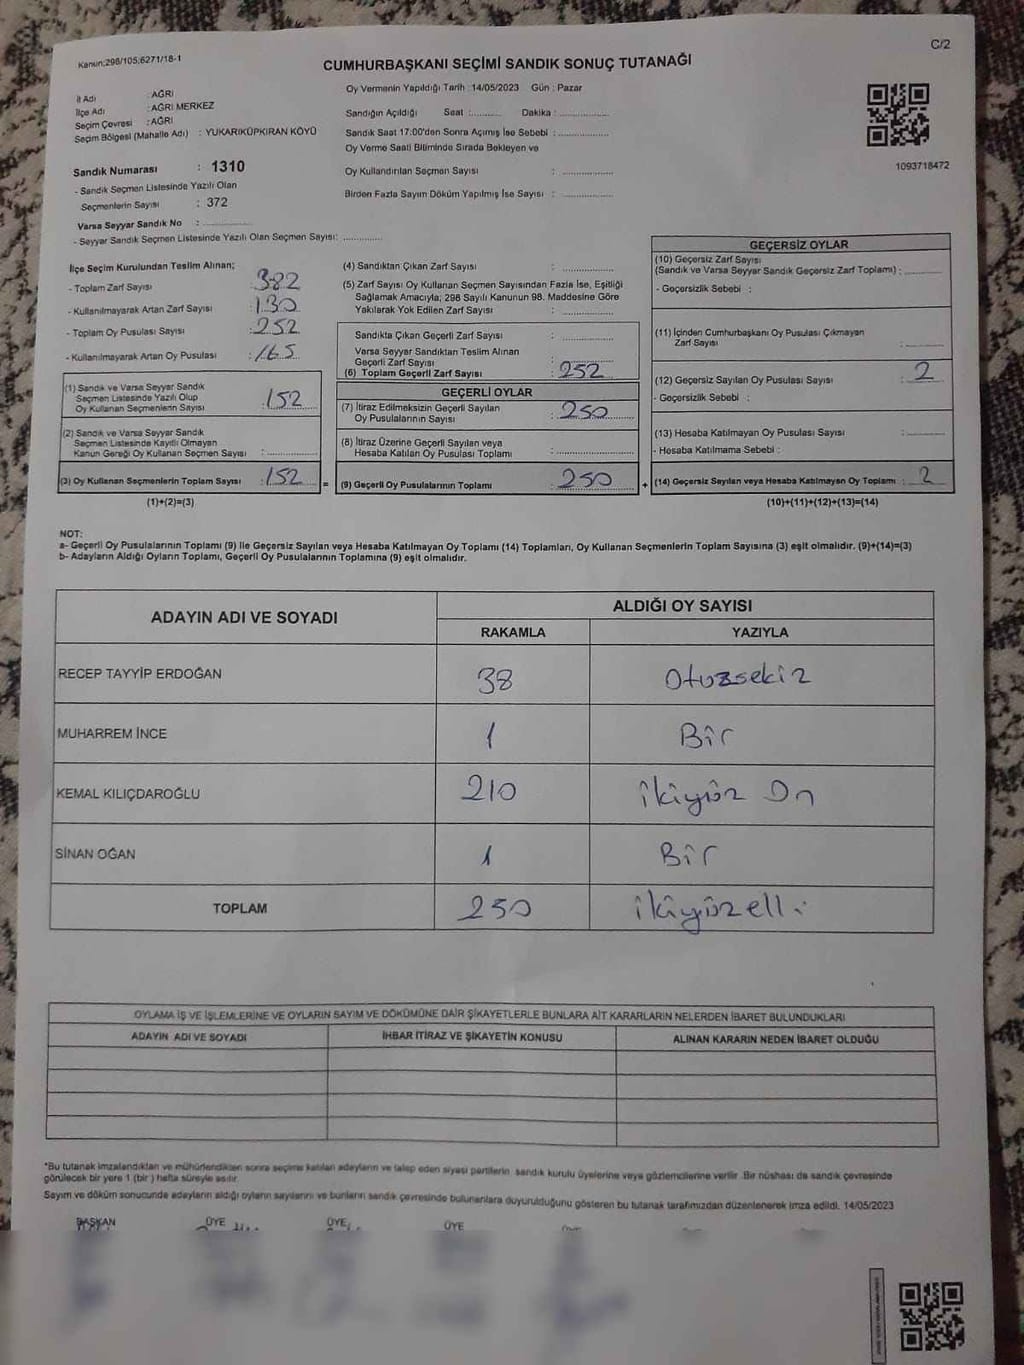 Kanun:298/105;6271/18-1
C/2
CUMHURBAŞKANI SEÇİMİ SANDIK SONUÇ TUTANAĞI
İl Adı : AĞRI
İlçe Adı : AĞRI MERKEZ
Seçim Çevresi : AĞRI
Seçim Bölgesi (Mahalle Adı) : YUKARIKÜPKIRAN KÖYÜ
Oy Vermenin Yapıldığı Tarih :14/05/2023 Gün : Pazar
Sandığın Açıldığı Saat :........... Dakika : ................
Sandık Saat 17:00'den Sonra Açımış İse Sebebi : ................
Oy Verme Saati Bitiminde Sırada Bekleyen ve
Oy Kullandırılan Seçmen Sayısı : ................
Birden Fazla Sayım Döküm Yapılmış İse Sayısı : ................
1093718472
Sandık Numarası : 1310
- Sandık Seçmen Listesinde Yazılı Olan
Seçmenlerin Sayısı : 372
Varsa Seyyar Sandık No : ................
- Seyyar Sandık Seçmen Listesinde Yazılı Olan Seçmen Sayısı: .............
İlçe Seçim Kurulundan Teslim Alınan;
- Toplam Zarf Sayısı : 382
- Kullanılmayarak Artan Zarf Sayısı : 130
- Toplam Oy Pusulası Sayısı : 252
- Kullanılmayarak Artan Oy Pusulası : 165
(1) Sandık ve Varsa Seyyar Sandık
Seçmen Listesinde Yazılı Olup
Oy Kullanan Seçmenlerin Sayısı : 152
(2) Sandık ve Varsa Seyyar Sandık
Seçmen Listesinde Kayıtlı Olmayan
Kanun Gereği Oy Kullanan Seçmen Sayısı : ................
(3) Oy Kullanan Seçmenlerin Toplam Sayısı : 152
(1)+(2)=(3)
(4) Sandıktan Çıkan Zarf Sayısı : ................
(5) Zarf Sayısı Oy Kullanan Seçmen Sayısından Fazla İse, Eşitliği
Sağlamak Amacıyla; 298 Sayılı Kanunun 98. Maddesine Göre
Yakılarak Yok Edilen Zarf Sayısı : ................
Sandıkta Çıkan Geçerli Zarf Sayısı : ................
Varsa Seyyar Sandıktan Teslim Alınan
Geçerli Zarf Sayısı
(6) Toplam Geçerli Zarf Sayısı : 252
GEÇERLİ OYLAR
(7) İtiraz Edilmeksizin Geçerli Sayılan
Oy Pusulalarının Sayısı : 250
(8) İtiraz Üzerine Geçerli Sayılan veya
Hesaba Katılan Oy Pusulası Toplamı : ................
= (9) Geçerli Oy Pusulalarının Toplamı : 250
GEÇERSİZ OYLAR
(10) Geçersiz Zarf Sayısı
(Sandık ve Varsa Seyyar Sandık Geçersiz Zarf Toplamı) : ............
- Geçersizlik Sebebi :
(11) İçinden Cumhurbaşkanı Oy Pusulası Çıkmayan
Zarf Sayısı : ............
(12) Geçersiz Sayılan Oy Pusulası Sayısı : 2
- Geçersizlik Sebebi :
(13) Hesaba Katılmayan Oy Pusulası Sayısı : ............
- Hesaba Katılmama Sebebi :
+ (14) Geçersiz Sayılan veya Hesaba Katılmayan Oy Toplamı : 2
(10)+(11)+(12)+(13)=(14)
NOT:
a- Geçerli Oy Pusulalarının Toplamı (9) ile Geçersiz Sayılan veya Hesaba Katılmayan Oy Toplamı (14) Toplamları, Oy Kullanan Seçmenlerin Toplam Sayısına (3) eşit olmalıdır. (9)+(14)=(3)
b- Adayların Aldığı Oyların Toplamı, Geçerli Oy Pusulalarının Toplamına (9) eşit olmalıdır.
ADAYIN ADI VE SOYADI
ALDIĞI OY SAYISI
RAKAMLA YAZIYLA
RECEP TAYYİP ERDOĞAN 38 Otuzsekiz
MUHARREM İNCE 1 Bir
KEMAL KILIÇDAROĞLU 210 ikiyüz On
SİNAN OĞAN 1 Bir
TOPLAM 250 ikiyüzelli
OYLAMA İŞ VE İŞLEMLERİNE VE OYLARIN SAYIM VE DÖKÜMÜNE DAİR ŞİKAYETLERLE BUNLARA AİT KARARLARIN NELERDEN İBARET BULUNDUKLARI
ADAYIN ADI VE SOYADI İHBAR İTİRAZ VE ŞİKAYETİN KONUSU ALINAN KARARIN NEDEN İBARET OLDUĞU
*Bu tutanak imzalandıktan ve mühürlendikten sonra seçime katılan adayların ve talep eden siyasi partilerin sandık kurulu üyelerine veya gözlemcilerine verilir. Bir nüshası da sandık çevresinde
görülecek bir yere 1 (bir) hafta süreyle asılır.
Sayım ve döküm sonucunda adayların aldığı oyların sayılarını ve bunların sandık çevresinde bulunanlara duyurulduğunu gösteren bu tutanak tarafımızdan düzenlenerek imza edildi. 14/05/2023
BAŞKAN ÜYE ÜYE ÜYE ÜYE